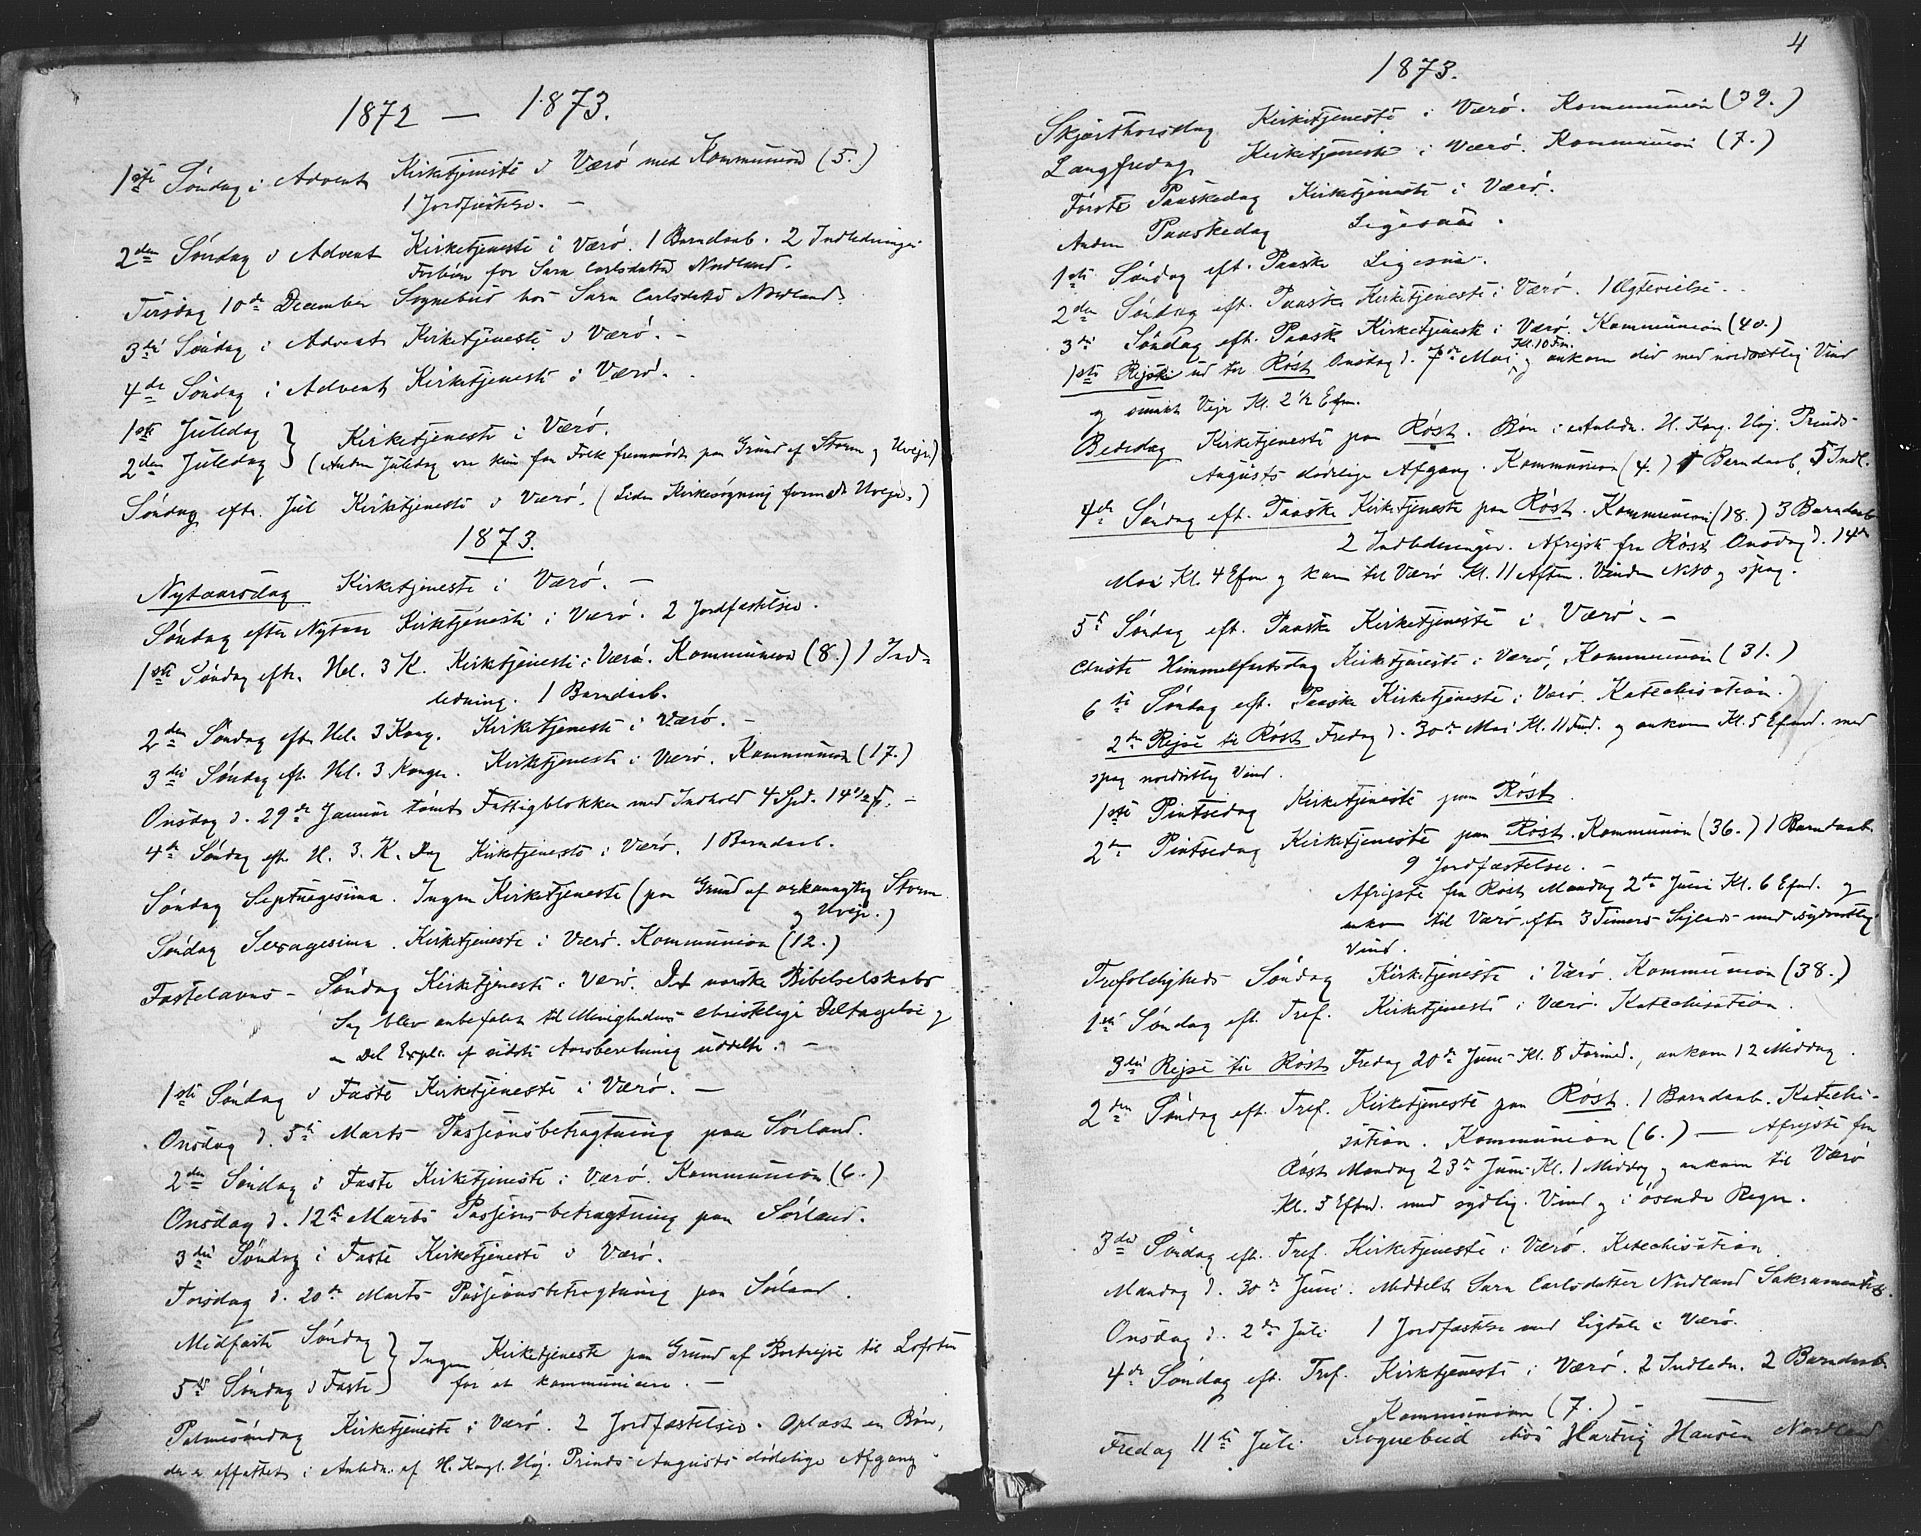 1872 — 1873.
1ste Søndag i Advent Kirketjeneste i Værø med Kommunion (5.)
1 Jordfæstelse. —
2den Søndag i Advent Kirketjeneste i Værø. 1 Barndaab. 2 Indledninger
Forbøn for Sara Carlsdatter Nordland.
Tirsdag 10de December Sognebud hos Sara Carlsdatter Nordland.
3die Søndag i Advent Kirketjeneste i Værø. —
4de Søndag i Advent Kirketjeneste i Værø. —
1ste Juledag } Kirketjeneste i Værø.
2den Juledag } (Anden Juledag var kun faa Folk fremmødt paa Grund af Storm og Uveir.)
Søndag efter Jul Kirketjeneste i Værø. (Liden Kirkesøgning formedelst Uveir.)
1873.
Nytaarsdag Kirketjeneste i Værø. —
Søndag efter Nytaar Kirketjeneste i Værø. 2 Jordfæstelser.
1ste Søndag eft. Hel. 3 K. Kirketjeneste i Værø. Kommunion (8.) 1 Ind-
ledning. 1 Barndaab.
2den Søndag eft. Hel. 3 Kong. Kirketjeneste i Værø. —
3die Søndag eft. Hel. 3 Konger. Kirketjeneste i Værø. Kommunion (17.)
Onsdag d. 29de Januar tømt Fattigblokken med Indhold 4 Spd. 14 1/2 ß. —
4de Søndag eft. H. 3. K. Dag Kirketjeneste i Værø. 1 Barndaab.
Søndag Septuagesima. Ingen Kirketjeneste (paa Grund af orkanagtig Storm
og Uveir.)
Søndag Sexagesima. Kirketjeneste i Værø. Kommunion (12.)
Fastelavns-Søndag Kirketjeneste i Værø. Det norske Bibelselskabs
Sag blev anbefalet til Menighedens christelige Deltagelse og
en Del Expl. af sidste Aarsberetning uddelte. —
1ste Søndag i Faste Kirketjeneste i Værø. —
Onsdag d. 5te Marts Passionsbetragtning paa Sørland.
2den Søndag i Faste Kirketjeneste i Værø. Kommunion (6.)
Onsdag d. 12te Marts Passionsbetragtning paa Sørland.
3die Søndag i Faste Kirketjeneste i Værø.
Torsdag d. 20de Marts Passionsbetragtning paa Sørland.
Midfaste Søndag } Ingen Kirketjeneste paa Grund af Bortreise til Lofoten
5te Søndag i Faste } for at kommunicere. —
Palmesøndag Kirketjeneste i Værø. 2 Jordfæstelser. Oplæst en Bøn,
der er affattet i Anledn. af H. Kongl. Høj. Prinds Augusts dødelige Afgang
4
1873.
Skjærthorsdag Kirketjeneste i Værø. Kommunion (39.)
Langfredag Kirketjeneste i Værø. Kommunion (7.)
Første Paaskedag Kirketjeneste i Værø.
Anden Paaskedag Ligesaa.
1ste Søndag eft. Paaske Ligesaa.
2den Søndag eft. Paaske Kirketjeneste i Værø. 1 Ægtevielse.
3die Søndag eft. Paaske Kirketjeneste i Værø. Kommunion (40.)
1ste Rejse ud til Røst Onsdag d. 7de Mai Kl. 10 Fm. og ankom did med nordostlig Vind
og smukt Vejr Kl. 2 1/2 Efm.
Bededag Kirketjeneste paa Røst. Bøn i Anledn. H. Kong. Høj. Prinds
Augusts dødelige Afgang. Kommunion (4.) 1 Barndaab, 5 Indl.
4de Søndag eft. Paaske Kirketjeneste paa Røst. Kommunion (18.) 3 Barndaab
2 Indledninger. Afrejste fra Røst Onsdag d. 14de
Mai Kl. 4 Efm og kom til Værø Kl. 11 Aften. Vinden NO og spag.
5te Søndag eft. Paaske Kirketjeneste i Værø. —
Christi Himmelfartsdag Kirketjeneste i Værø, Kommunion (31.)
6te Søndag eft. Paaske Kirketjeneste i Værø. Katechisation.
2den Rejse til Røst Fredag d. 30de Mai Kl. 11 Fmd. og ankom Kl. 5 Efmd. med
spag nordostlig Vind.
1ste Pintsedag Kirketjeneste paa Røst.
2den Pintsedag Kirketjeneste paa Røst. Kommunion (36.) 1 Barndaab.
9 Jordfæstelser. —
Afrejste fra Røst Mandag 2den Juni Kl. 6 Efmd. og
ankom til Værø efter 3 Timers Sejlads med sydvestlig
Vind.
Trefoldigheds Søndag Kirketjeneste i Værø. Kommunion (38.)
1ste Søndag eft. Tref. Kirketjeneste i Værø. Katechisation.
3die Rejse til Røst Fredag 20de Juni Kl. 8 Formd., ankom 12 Middag.
2den Søndag eft. Tref. Kirketjeneste paa Røst. 1 Barndaab. Katechi-
sation. Kommunion (6.) — Afrejste fra
Røst Mandag 23de Juni Kl. 1 Middag og ankom til Værø
Kl. 5 Eftmd. med sydlig Vind og i øsende Regn.
3die Søndag eft. Tref. Kirketjeneste i Værø. Katechisation.
Mandag d. 30te Juni. Meddelt Sara Carlsdatter Nordland Sakramentet.
Onsdag d. 2den Juli 1 Jordfæstelse med Ligtale i Værø.
4de Søndag eft. Tref. Kirketjeneste i Værø. 2 Indledn. 2 Barndaab
Kommunion (7.) —
Fredag 11te Juli Sognebud hos Hartvig Hansen Nordland